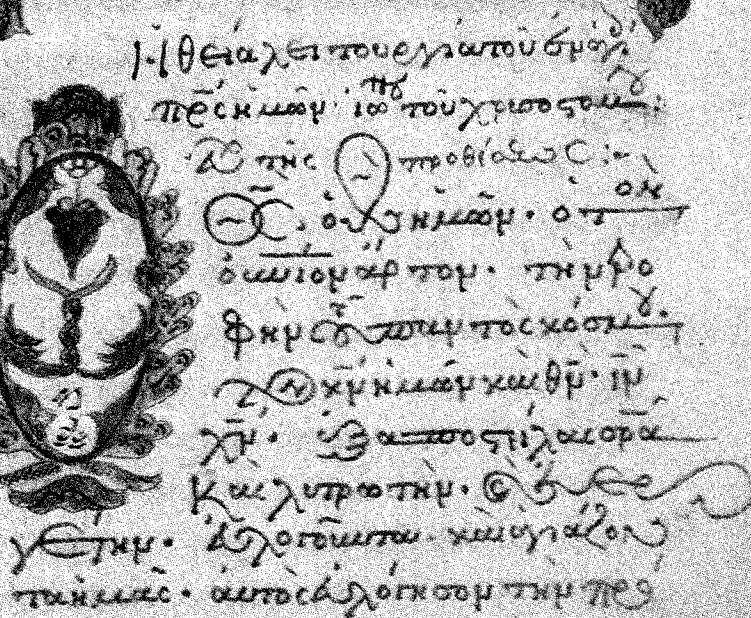 Ἡ θεία λειτουργία τοῦ ἐν ἁγί
πρς ἡμῶν ιω τοῦ χρυσοστομου:
εὐχ τῆς προθέσεως:
Θς ὁ θς ἡμῶν. ὁ τὸν
οὐνιον ἄρτον. τὴν τρο
φὴν τοῦ παντὸς κόσμου.
τὸν κν ἡμῶν καὶ θν ιν
χν. ἐξαποστείλας σρα
καὶ λυτρωτὴν. καὶ εὐερ
γέτην. εὐλογοῦντα καὶ ἁγιάζον
τα ἡμᾶς. αὐτὸς εὐλόγησον τὴν πρό